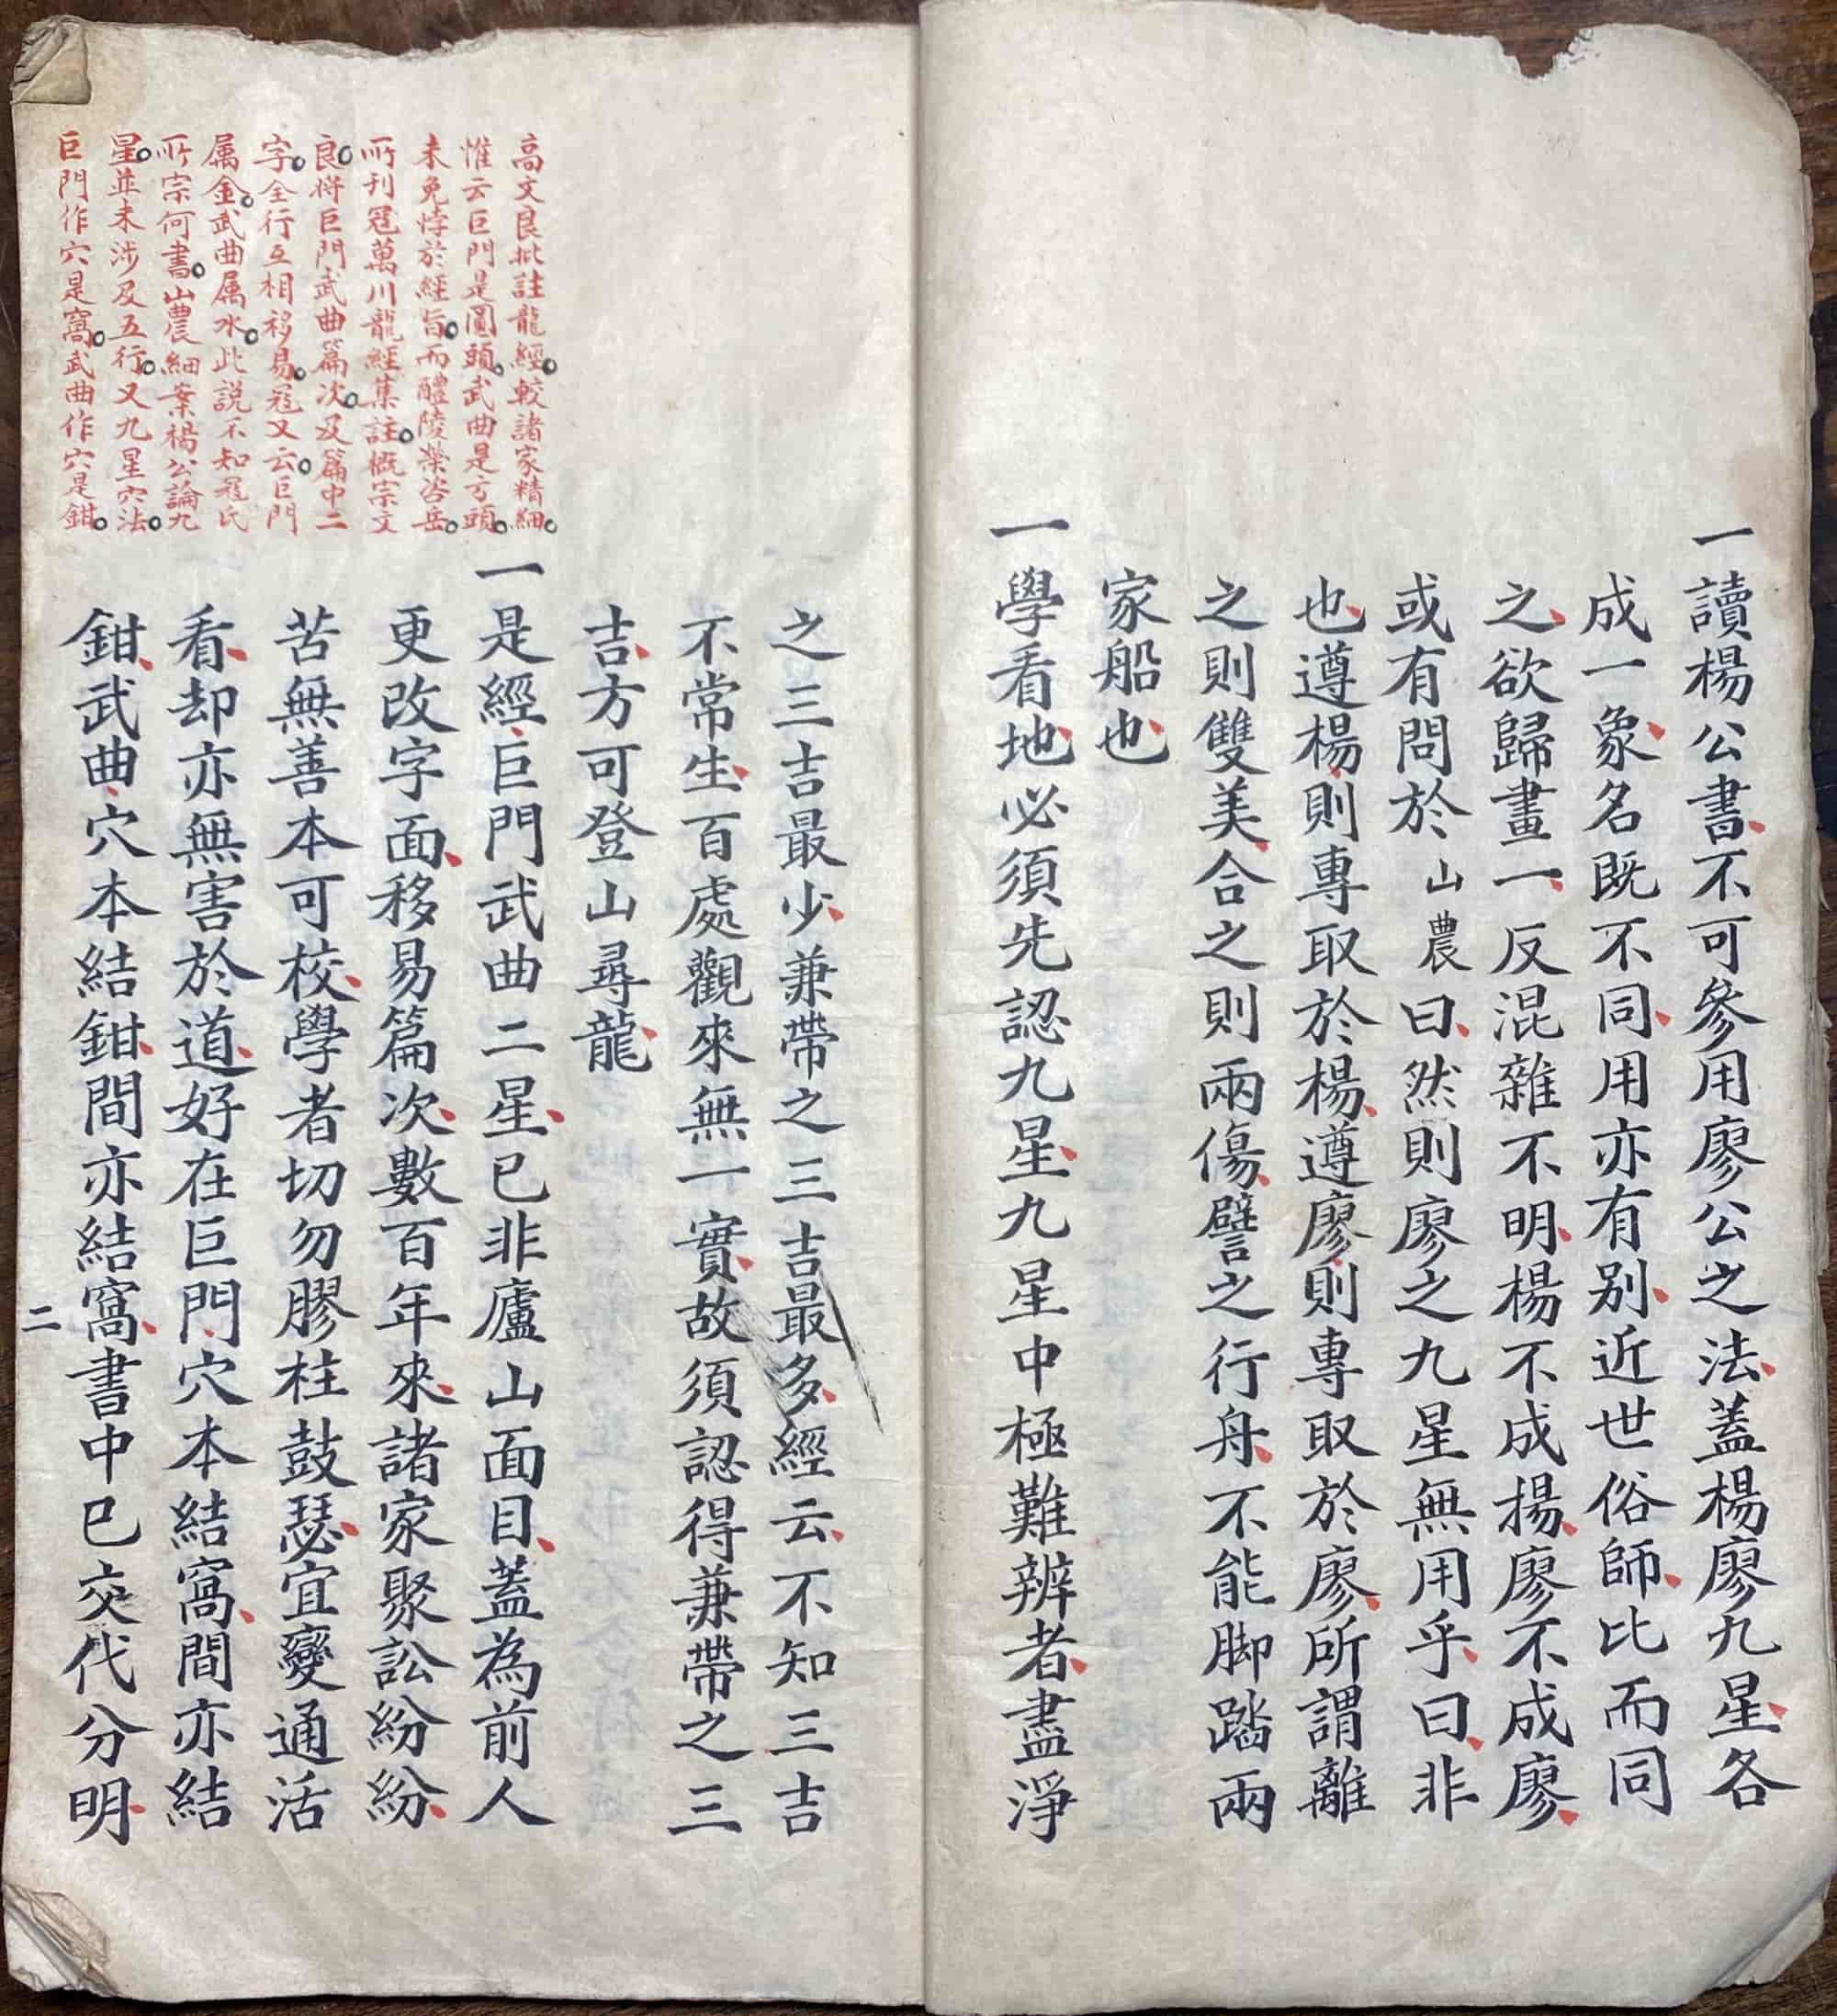 一讀楊公書不可參用廖公之法蓋楊廖九星各
成一象名既不同用亦有别近世俗師比而同
之欲歸畫一反混雜不明楊不成揚廖不成廖
或有問於山農曰然則廖之九星無用乎曰非
也遵楊則專取於楊遵廖則專取於廖所謂離
之則雙美合之則兩傷譬之行舟不能脚踏兩
家船也
一學看地必須先認九星九星中極難辨者盡淨
之三吉最少兼帶之三吉最多經云不知三吉
不常生百處觀來無一實故須認得兼帶之三
吉方可登山尋龍
一是經巨門武曲二星已非廬山面目蓋為前人
更改字面移易篇次數百年來諸家聚訟紛紛
苦無善本可校學者切勿膠柱鼓瑟宜變通活
看却亦無害於道好在巨門穴本結窩間亦結
鉗武曲穴本結鉗間亦結窩書中已交代分明
二
高文良批註龍經較諸家精細
惟云巨門是圓頭武曲是方頭
未免悖於經旨而醴陵榮咨岳
所刊冠萬川龍經集註概宗文
良將巨門武曲篇次及篇中二
字全行互相移易冠又云巨門
属金武曲属水此說不知冠氏
所宗何書山農細案楊公論九
星並未涉及五行又九星穴法
巨門作穴是窩武曲作穴是鉗